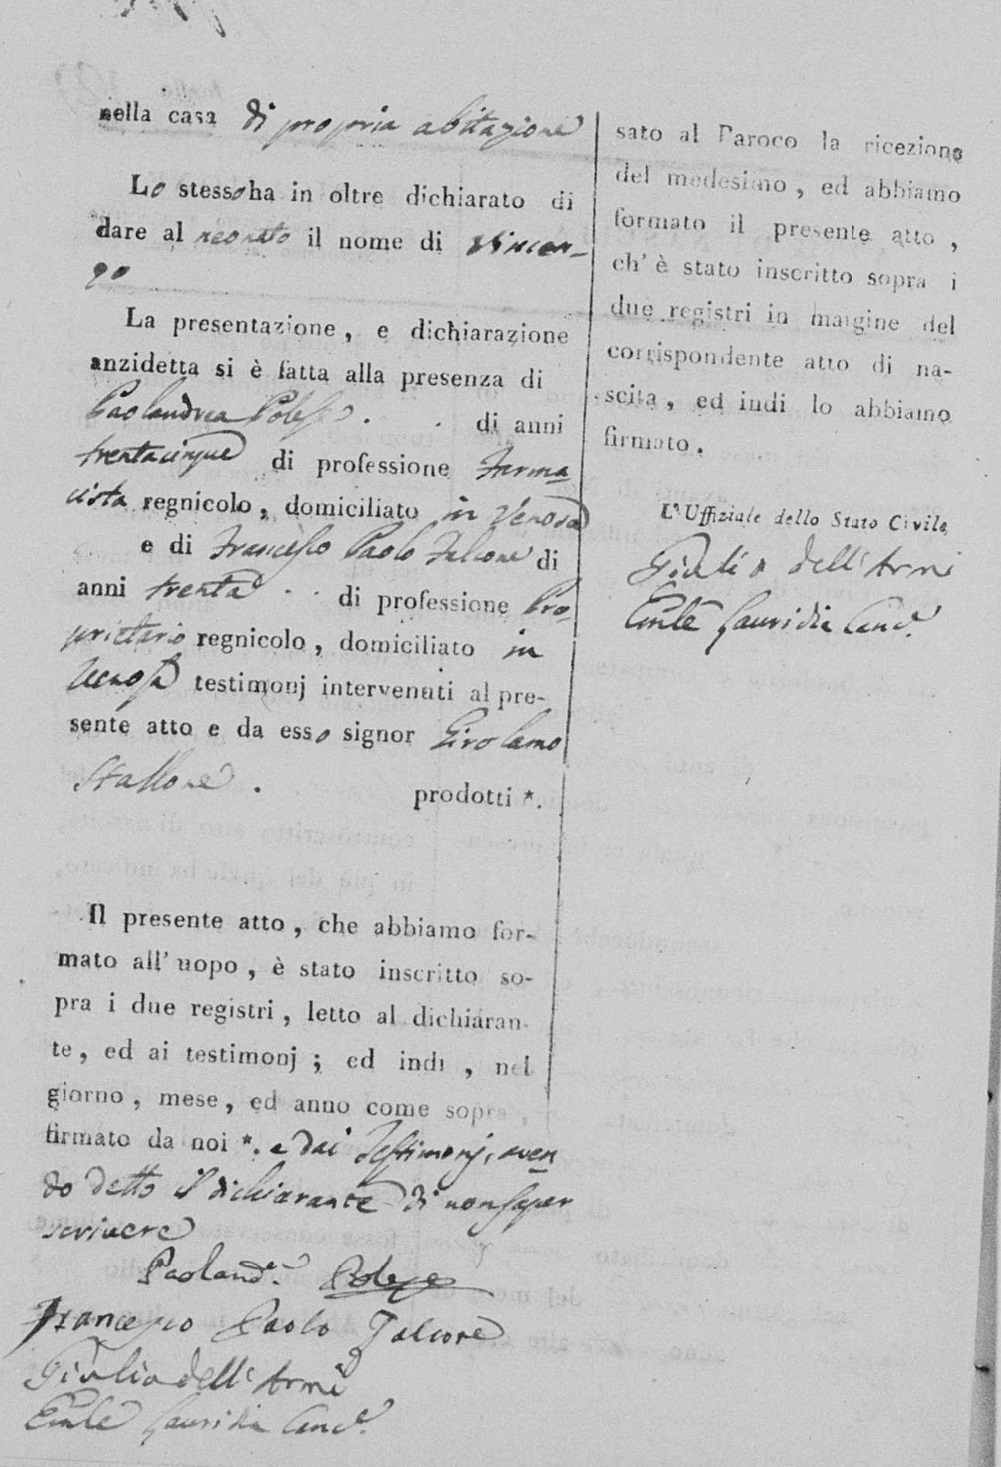 nella casa di propria abitazione
Lo stesso ha in oltre dichiarato di
dare al neonato il nome di Vincen-
zo
La presentazione, e dichiarazione
anzidetta si è fatta alla presenza di
Paolandrea Polese . . di anni
trentacinque di professione Farma
cista regnicolo, domiciliato in Venosa
e di Francesco Paolo Falcone di
anni trenta . . di professione Pro
prietario regnicolo, domiciliato in
Venosa testimonj intervenuti al pre-
sente atto e da esso signor Girolamo
Stallone . prodotti *.
Il presente atto, che abbiamo for-
mato all'uopo, è stato inscritto so-
pra i due registri, letto al dichiaran-
te, ed ai testimonj; ed indi, nel
giorno, mese, ed anno come sopra,
firmato da noi *. e dai Testimonj, aven
do detto il dichiarante di non saper
scrivere
Paoland.ª Polese
Francesco Paolo Falcone
Giulio dell'Armi
sato al Paroco la ricezione
del medesimo, ed abbiamo
formato il presente atto,
ch'è stato inscritto sopra i
due registri in margine del
corrispondente atto di na-
scita, ed indi lo abbiamo
firmato.
L'Uffiziale dello Stato Civile
Giulio dell'Armi